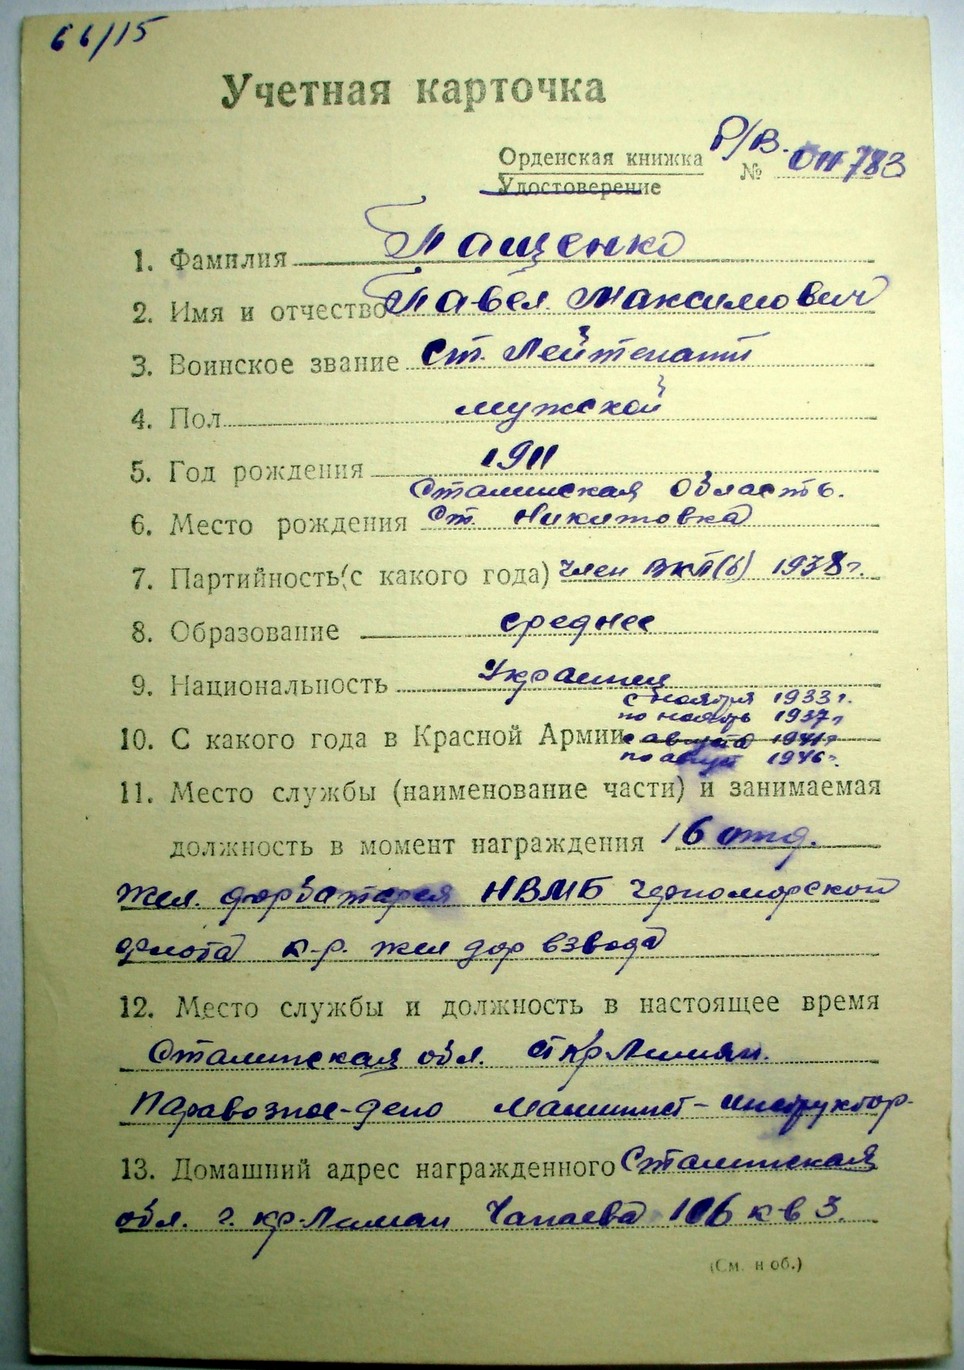 66/15
Учетная карточка
Р/В.
Орденская книжка № 783
Удостоверение
1. Фамилия Пащенко
2. Имя и отчество Павел Максимович
3. Воинское звание Ст. Лейтенант
4. Пол мужской
5. Год рождения 1911
Сталинская область.
6. Место рождения Ст. Никитовка
7. Партийность (с какого года) Член ВКП(б) 1938 г.
8. Образование среднее
9. Национальность Украинец
с ноября 1933 г.
по ноябрь 1937 г
10. С какого года в Красной Армии с августа 1941 г
по август 1946 г.
11. Место службы (наименование части) и занимаемая
должность в момент награждения 16 отд.
жел. дор батарея НВМБ Черноморского
флота к-р. жел дор взвода
12. Место службы и должность в настоящее время
Сталинская обл. ст Кр Лиман.
Паравозное-депо Машинист-инструктор.
13. Домашний адрес награжденного Сталинская
обл. г. кр-Лиман Чапаева 106 к-в 3.
(См. н об.)